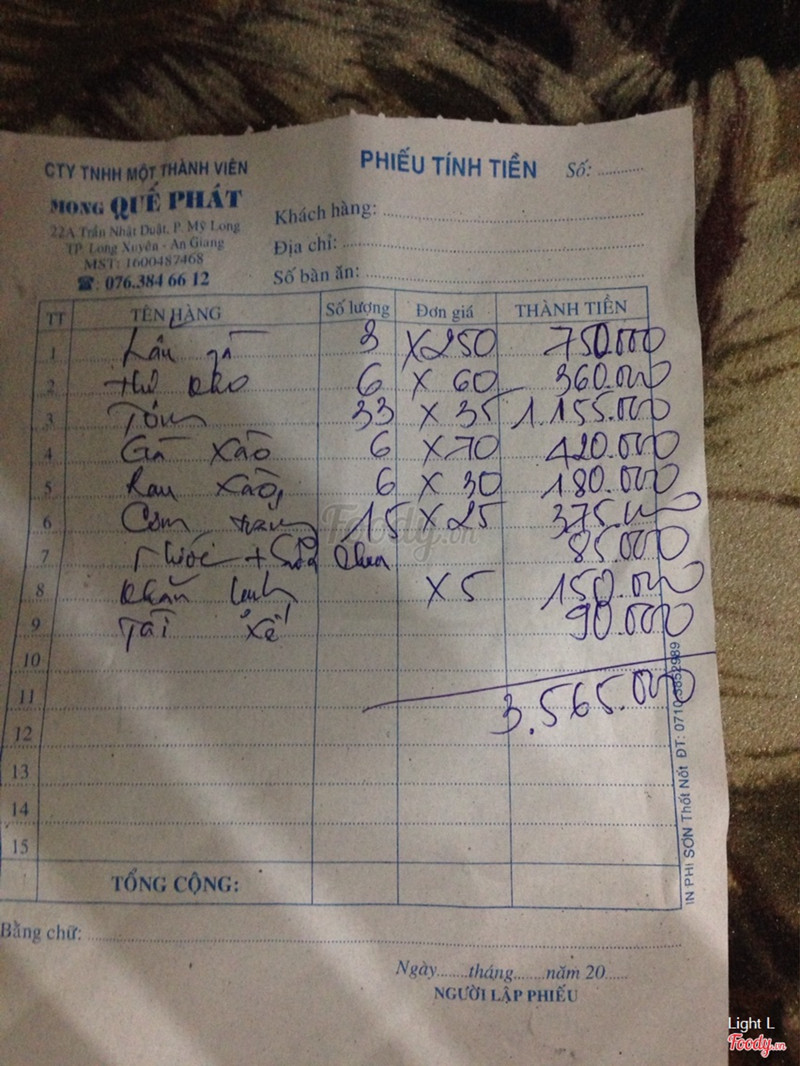 CTY TNHH MỘT THÀNH VIÊN
MONG QUẾ PHÁT
22A Trần Nhật Duật, P. Mỹ Long
TP. Long Xuyên - An Giang
MST: 1600487468
☎: 076.384 66 12
PHIẾU TÍNH TIỀN Số: ...........
Khách hàng: ...........
Địa chỉ: ...........
Số bàn ăn: ...........
TT TÊN HÀNG Số lượng Đơn giá THÀNH TIỀN
1 Lẩu gà 3 x 250 750.000
2 kho 6 x 60 360.000
3 Tôm 33 x 35 1.155.000
4 Gà xào 6 x 70 420.000
5 Rau xào 6 x 30 180.000
6 Cơm 15 x 25 375.000
7 Nước + Sữa chua 85.000
8 Khăn lạnh x 5 150.000
9 Tài xế 90.000
10
11 3.565.000
12
13
14
15
TỔNG CỘNG:
Bằng chữ: ...........
Ngày.......tháng.......năm 20.....
NGƯỜI LẬP PHIẾU
IN PHI SƠN Thốt Nốt ĐT: 0710.3852989
Foody.vn
Light L
Foody.vn